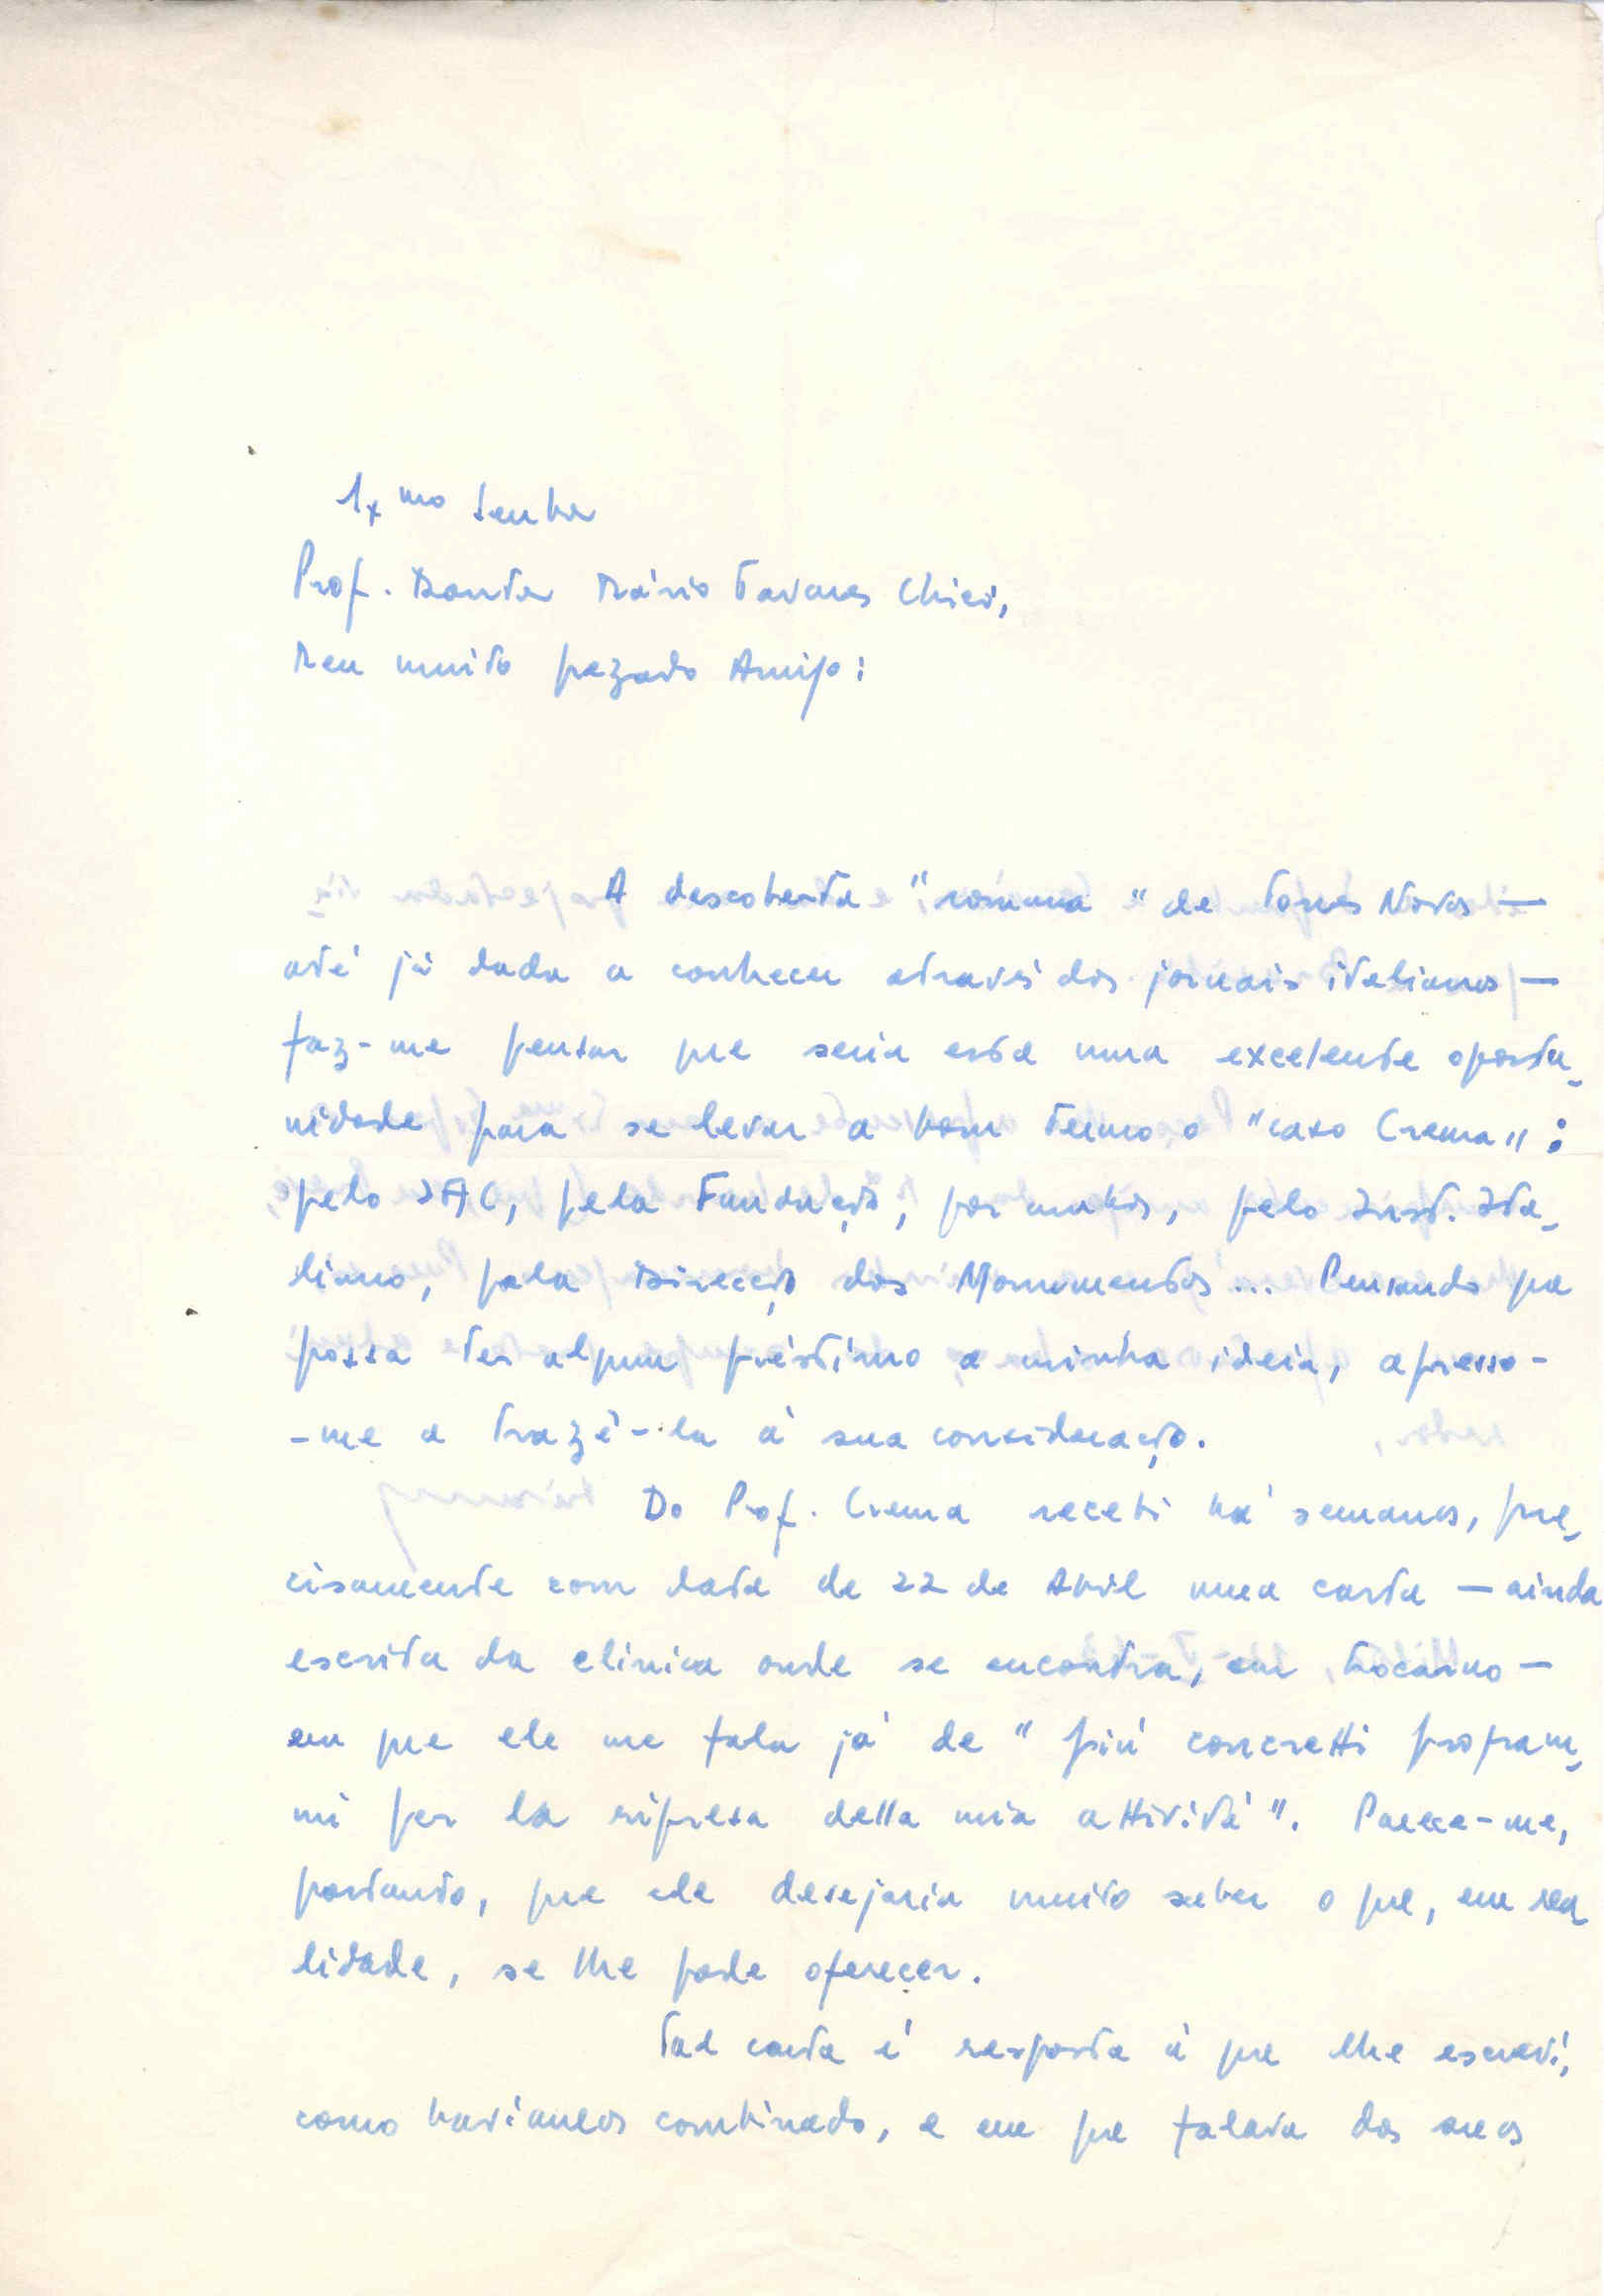 Exmo Senhor
Prof. Doutor Mário Tavares Chicó,
Meu muito prezado Amigo:
A descoberta "romana" de Torres Novas —
até já dada a conhecer através dos jornais italianos —
faz-me pensar que seria esta uma excelente oportu-
nidade para se levar a bom termo o "caso Crema":
pelo IAC, pela Fundação, por ambos, pelo Inst. Ita-
liano, pela Direcção dos Monumentos... Pensando que
possa ter algum préstimo a minha ideia, apresso-
-me a trazê-la à sua consideração.
Do Prof. Crema recebi há semanas, pre-
cisamente com data de 22 de Abril uma carta — ainda
escrita da clínica onde se encontra, em Locarno —
em que ele me fala já de "più concretti program-
mi per la ripresa della mia attività". Parece-me,
portanto, que ele desejaria muito saber o que, em rea
lidade, se lhe pode oferecer.
Tal carta é resposta à que lhe escrevi,
como havíamos combinado, e em que falava dos seus